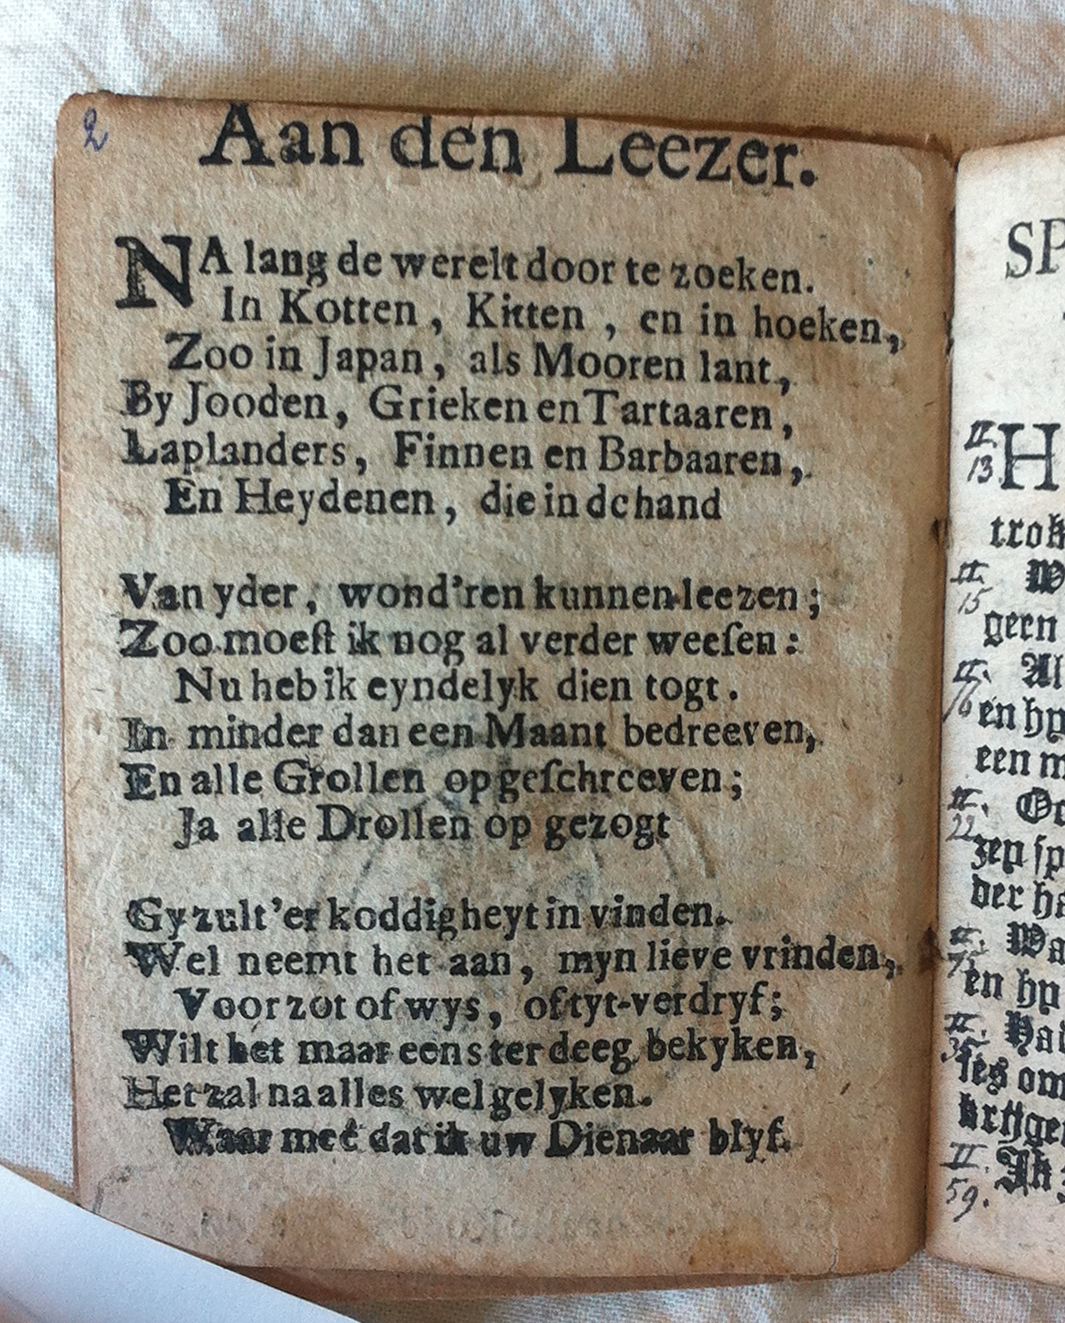 2
Aan den Leezer.
NA lang de werelt door te zoeken.
In Kotten, Kitten, en in hoeken,
Zoo in Japan, als Mooren lant,
By Jooden, Grieken en Tartaaren,
Laplanders, Finnen en Barbaaren,
En Heydenen, die in de hand
Van yder, wond'ren kunnen leezen;
Zoo moeſt ik nog al verder weeſen:
Nu heb ik eyndelyk dien togt.
In minder dan een Maant bedreeven,
En alle Grollen opgeſchreeven;
Ja alle Drollen op gezogt
Gy zult'er koddigheyt in vinden.
Wel neemt het aan, myn lieve vrinden,
Voor zot of wys, of tyt-verdryf;
Wilt het maar eens ter deeg bekyken,
Het zal na alles wel gelyken.
Waar meê dat ik uw Dienaar blyf.
SP
II.
13
H
trok
II.
15
W
gern
II.
16
Al
en hy
een m
II.
22
Oo
zey ſp
der ha
II.
75
Wa
en hy
II.
35
Hai
les om
krijgen
II.
59.
Ik